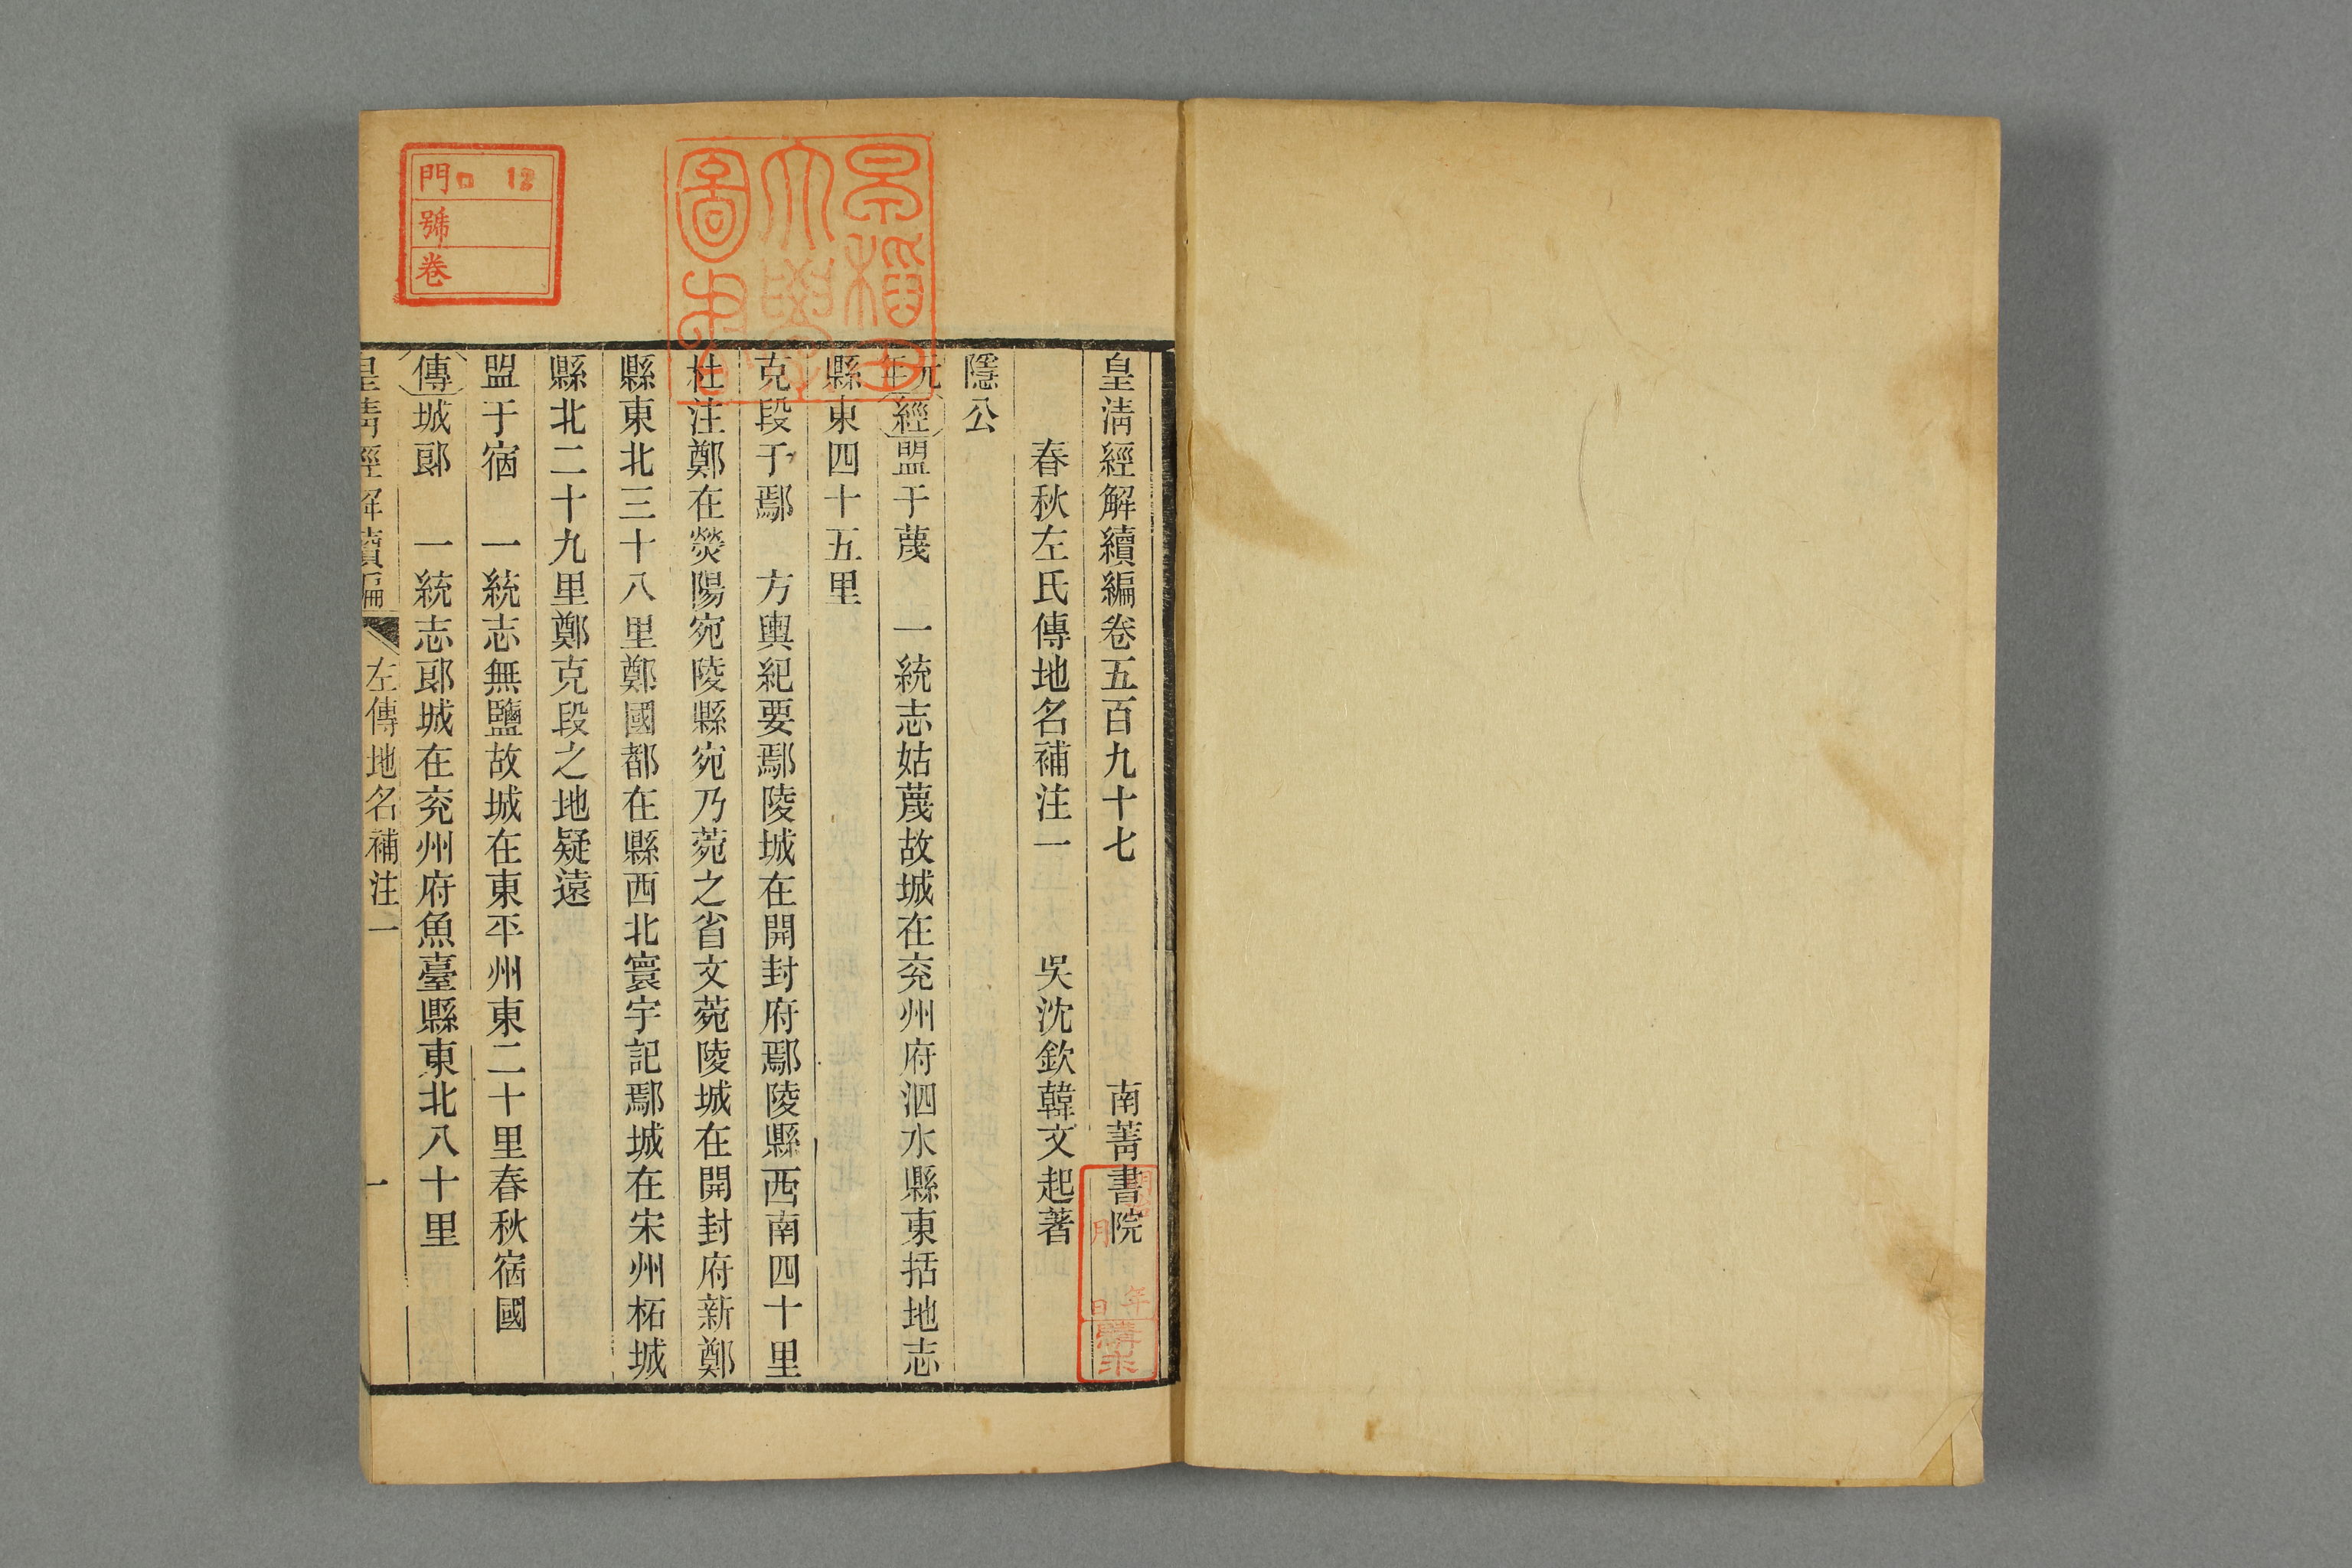 皇清經解續編卷五百九十七 南菁書院
春秋左氏傳地名補注一 吳沈欽韓文起著
隱公
元年經盟于蔑 一統志姑蔑故城在兖州府泗水縣東括地志
縣東四十五里
克段于鄢 方輿紀要鄢陵城在開封府鄢陵縣西南四十里
杜注鄭在熒陽宛陵縣宛乃菀之省文菀陵城在開封府新鄭
縣東北三十八里鄭國都在縣西北寰宇記鄢城在宋州柘城
縣北二十九里鄭克段之地疑遠
盟于宿 一統志無鹽故城在東平州東二十里春秋宿國
傳城郎 一統志郎城在兖州府魚臺縣東北八十里
皇清經解續編 左傳地名補注一 一
早稲田大學圖書
門 ロ 12
號
卷
年
月
日
購求